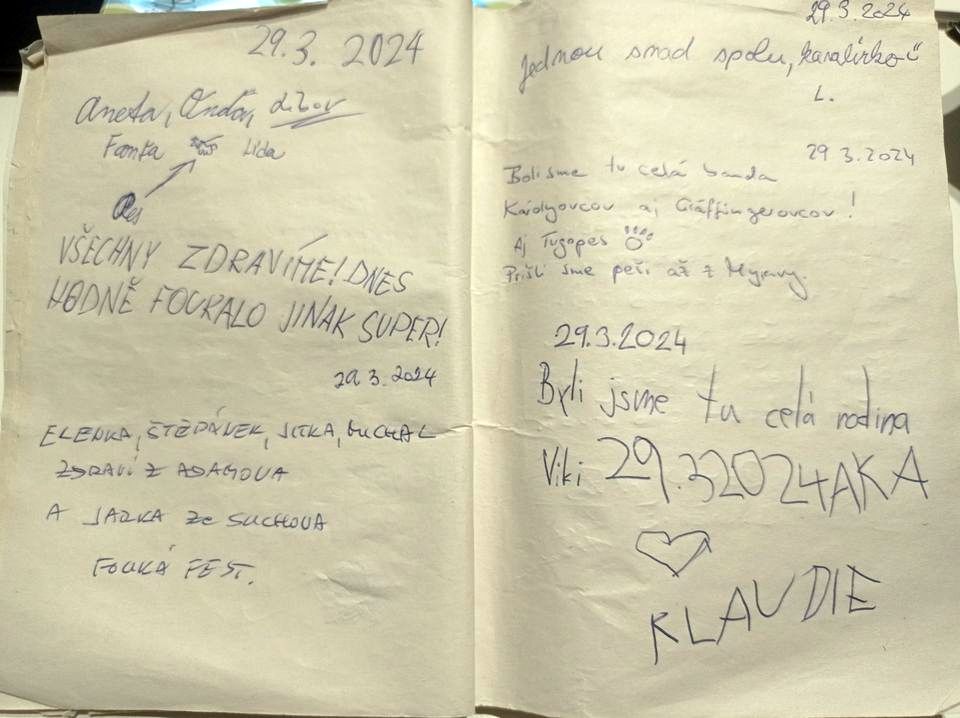 29.3. 2024
Aneta, Ondra, Libor
Fanka Lída
Pes
VŠECHNY ZDRAVÍME! DNES
HODNĚ FOUKALO JINAK SUPER!
29.3.2024
ELENKA, ŠTĚPÁNEK, JITKA, MICHAL
ZDRAVÍ Z ADAMOVA
A JARKA ZE SUCHOVA
FOUKÁ FEST.
29.3.2024
Jednou snad spolu,
L.
29.3.2024
Boli sme tu celá banda
aj !
Aj Tugopes
Prišli sme peši až z Myjavy.
29.3.2024
Byli jsme tu celá rodina
Viki 29.32024AKA
KLAUDIE